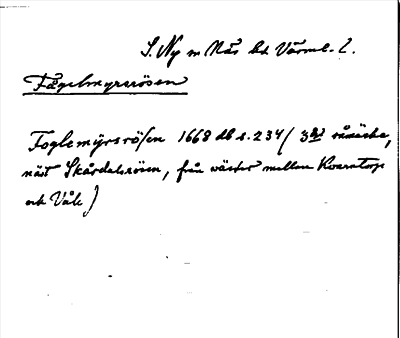 S. Ny m Näs hd Värml. l.
Fågelmyrsrösen
Foglemÿrsrösen 1668 db s. 234 (3de råmärke,
näst Skårdalsrösen, från wäster mellan Kvarntorp
och Våle)